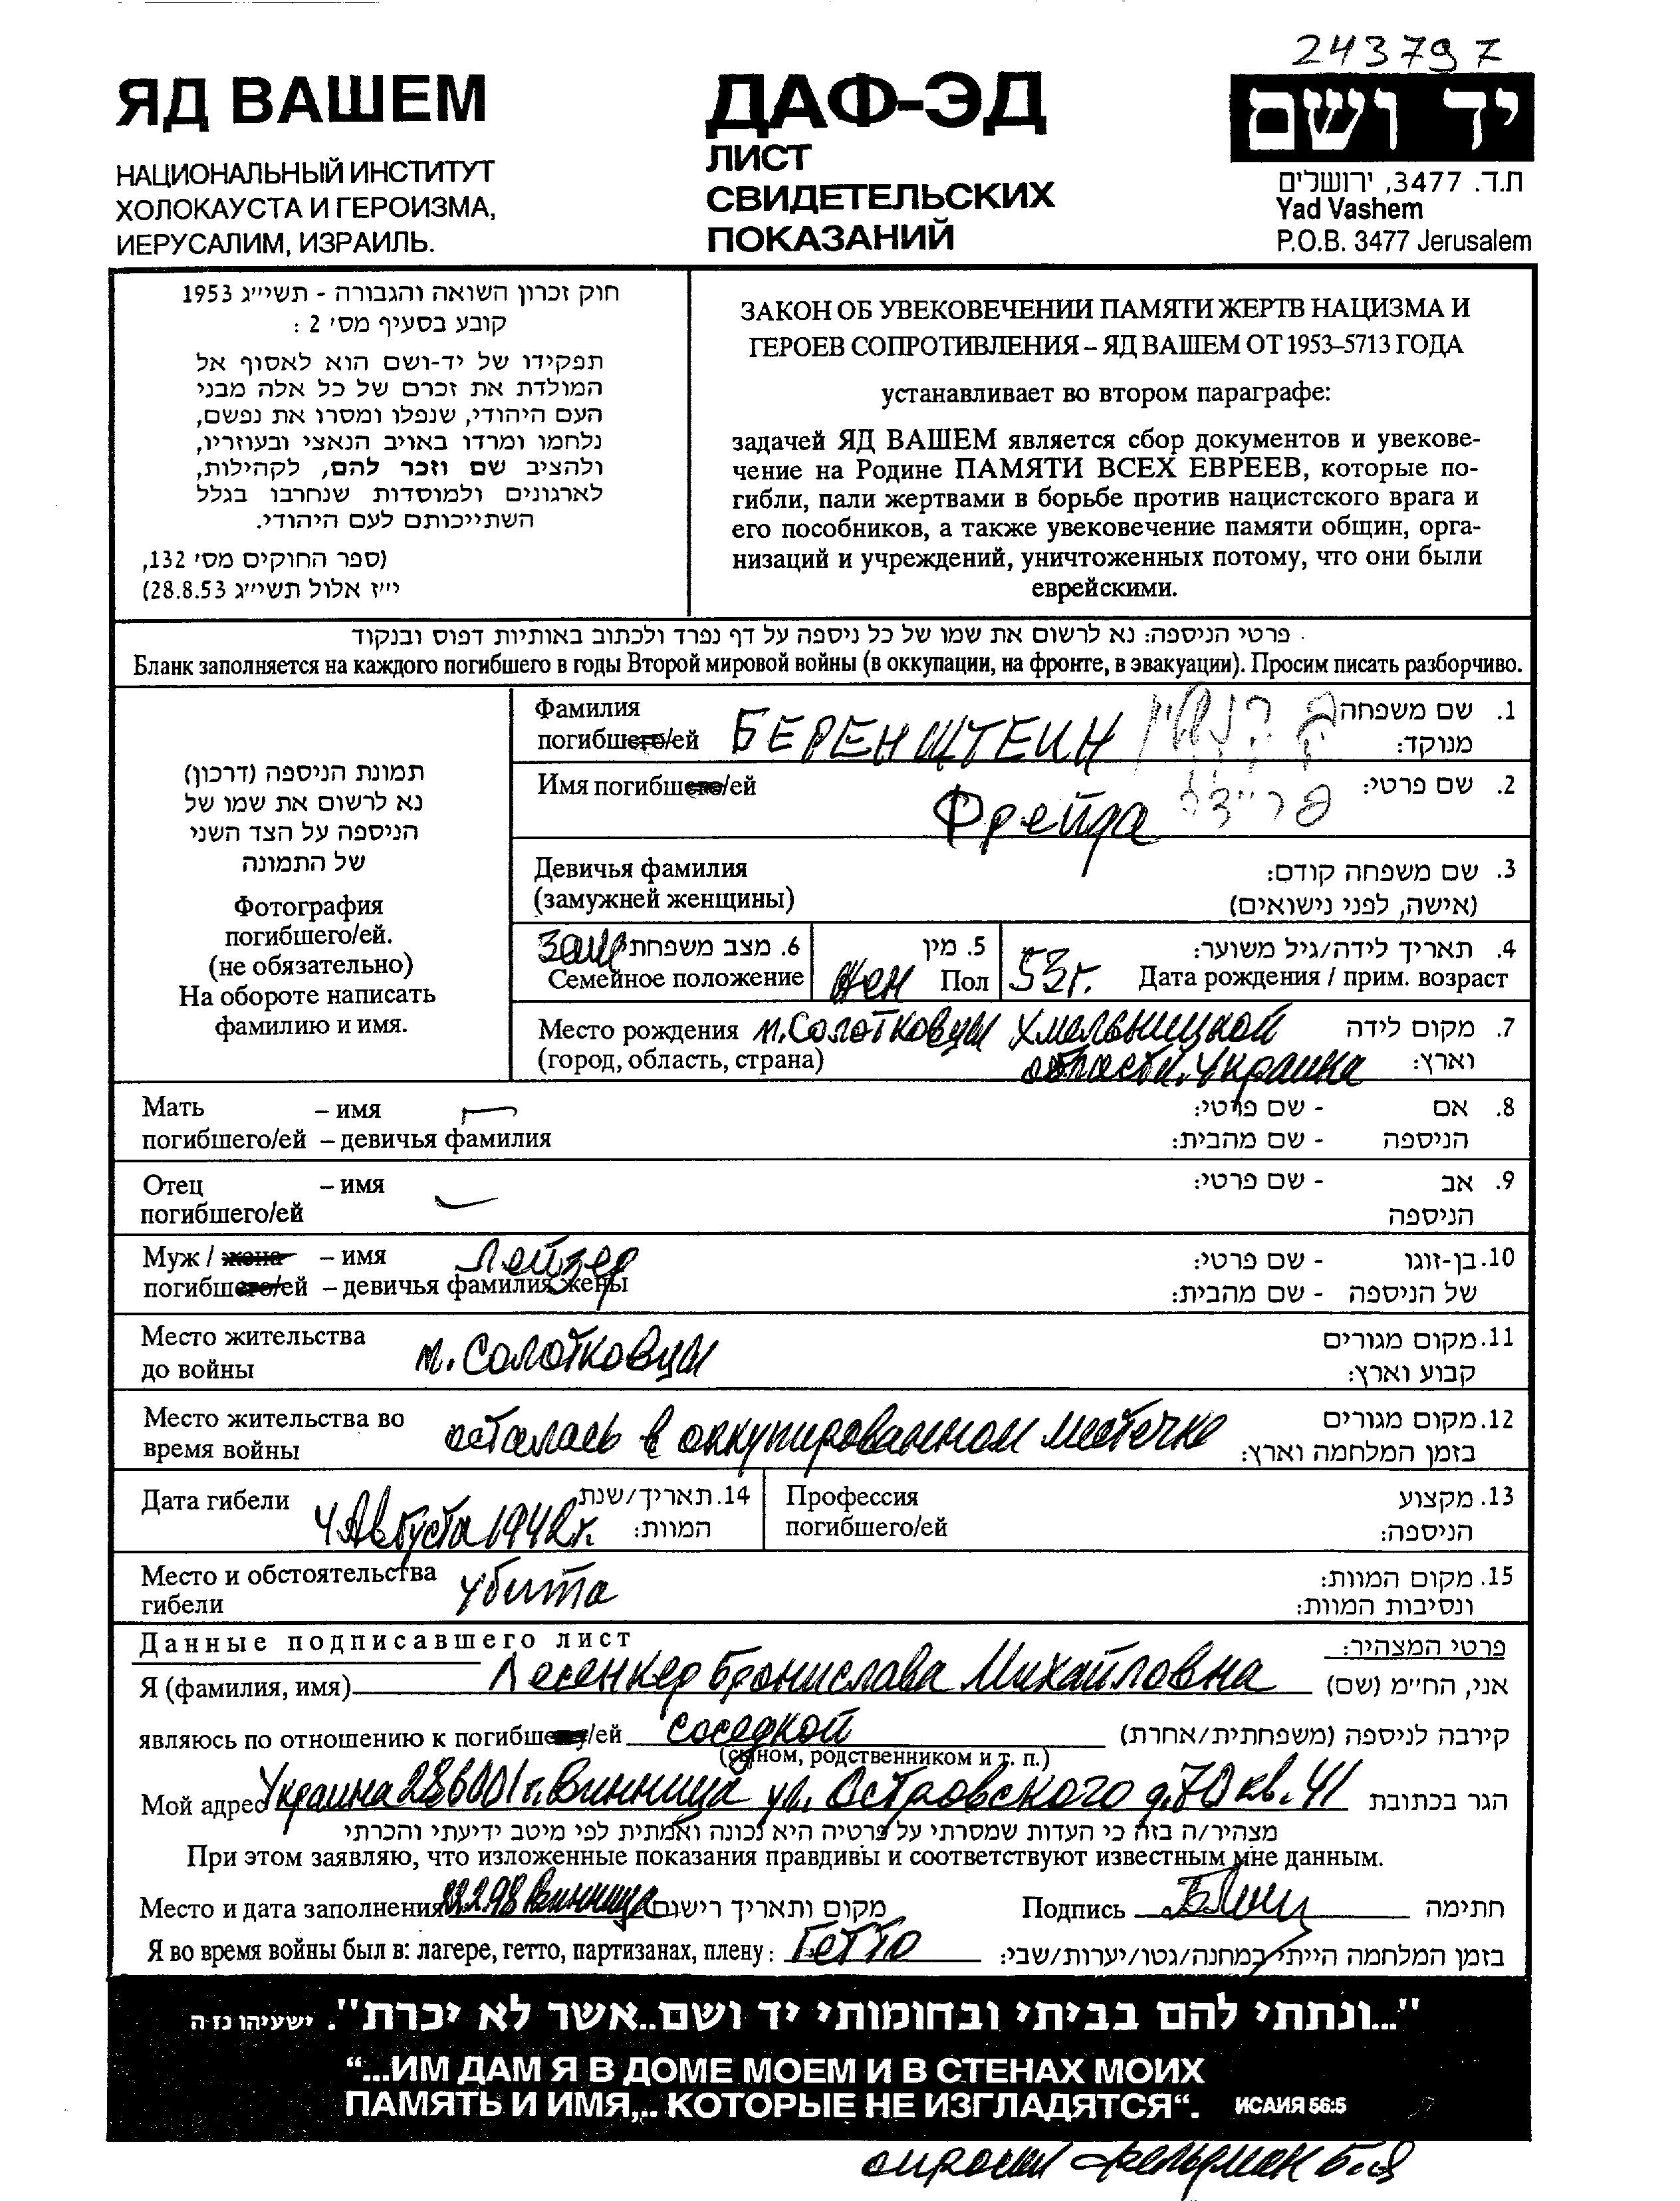 243797
ЯД ВАШЕМ
НАЦИОНАЛЬНЫЙ ИНСТИТУТ
ХОЛОКАУСТА И ГЕРОИЗМА,
ИЕРУСАЛИМ, ИЗРАИЛЬ.
ДАФ-ЭД
ЛИСТ
СВИДЕТЕЛЬСКИХ
ПОКАЗАНИЙ
יד ושם
ת.ד. 3477, ירושלים
Yad Vashem
P.O.B. 3477 Jerusalem
חוק זכרון השואה והגבורה - תשי״ג 1953
קובע בסעיף מס׳ 2 :
תפקידו של יד-ושם הוא לאסוף אל
המולדת את זכרם של כל אלה מבני
העם היהודי, שנפלו ומסרו את נפשם,
נלחמו ומרדו באויב הנאצי ובעוזריו,
ולהציב שם וזכר להם, לקהילות,
לארגונים ולמוסדות שנחרבו בגלל
השתייכותם לעם היהודי.
(ספר החוקים מס׳ 132,
י״ז אלול תשי״ג 28.8.53)
ЗАКОН ОБ УВЕКОВЕЧЕНИИ ПАМЯТИ ЖЕРТВ НАЦИЗМА И
ГЕРОЕВ СОПРОТИВЛЕНИЯ – ЯД ВАШЕМ ОТ 1953–5713 ГОДА
устанавливает во втором параграфе:
задачей ЯД ВАШЕМ является сбор документов и увекове-
чение на Родине ПАМЯТИ ВСЕХ ЕВРЕЕВ, которые по-
гибли, пали жертвами в борьбе против нацистского врага и
его пособников, а также увековечение памяти общин, орга-
низаций и учреждений, уничтоженных потому, что они были
еврейскими.
פרטי הניספה: נא לרשום את שמו של כל ניספה על דף נפרד ולכתוב באותיות דפוס ובנקוד .
Бланк заполняется на каждого погибшего в годы Второй мировой войны (в оккупации, на фронте, в эвакуации). Просим писать разборчиво.
תמונת הניספה (דרכון)
נא לרשום את שמו של
הניספה על הצד השני
של התמונה
Фотография
погибшего/ей.
(не обязательно)
На обороте написать
фамилию и имя.
Фамилия БЕРЕНШТЕИН 1. שם משפחה
погибшего/ей מנוקד:
Имя погибшего/ей Фрейда פריידה 2. שם פרטי:
Девичья фамилия 3. שם משפחה קודם:
(замужней женщины) (אישה, לפני נישואים)
Зам 6. מצב משפחת 5. מין 4. תאריך לידה/גיל משוער:
Семейное положение жен Пол 53г. Дата рождения / прим. возраст
Место рождения м. Солотковцы Хмельницкой 7. מקום לידה
(город, область, страна) области, Украина וארץ:
Мать – имя 8. אם - שם פרטי:
погибшего/ей – девичья фамилия הניספה - שם מהבית:
Отец – имя 9. אב - שם פרטי:
погибшего/ей הניספה
Муж / жена – имя Лейзер 10. בן-זוגו - שם פרטי:
погибшего/ей – девичья фамилия жены של הניספה - שם מהבית:
Место жительства 11. מקום מגורים
до войны м. Солотковцы קבוע וארץ:
Место жительства во осталась в оккупированном местечке 12. מקום מגורים
время войны בזמן המלחמה וארץ:
Дата гибели 4 Августа 1942г. 14. תאריך/שנת המוות:
Профессия 13. מקצוע
погибшего/ей הניספה:
Место и обстоятельства убита 15. מקום המוות:
гибели ונסיבות המוות:
Данные подписавшего лист פרטי המצהיר:
Я (фамилия, имя) Лесенкер Бронислава Михайловна אני, החי״מ (שם)
являюсь по отношению к погибшему/ей соседкой קירבה לניספה (משפחתית/אחרת)
(сыном, родственником и т. п.)
Мой адрес Украина 286001 г. Винница ул. Островского д.70 кв. 41 הגר בכתובת
מצהיר/ה בזה כי העדות שמסרתי על פרטיה היא נכונה ואמתית לפי מיטב ידיעתי והכרתי
При этом заявляю, что изложенные показания правдивы и соответствуют известным мне данным.
Место и дата заполнения 22.2.98 Винница מקום ותאריך רישום Подпись חתימה
Я во время войны был в: лагере, гетто, партизанах, плену: Гетто בזמן המלחמה הייתי במחנה/גטו/יערות/שבי:
"...ונתתי להם בביתי ובחומותי יד ושם..אשר לא יכרת". ישעיהו נז ה
“...ИМ ДАМ Я В ДОМЕ МОЕМ И В СТЕНАХ МОИХ
ПАМЯТЬ И ИМЯ,.. КОТОРЫЕ НЕ ИЗГЛАДЯТСЯ“. ИСАИЯ 56:5
опросил Фельдман Б.Я